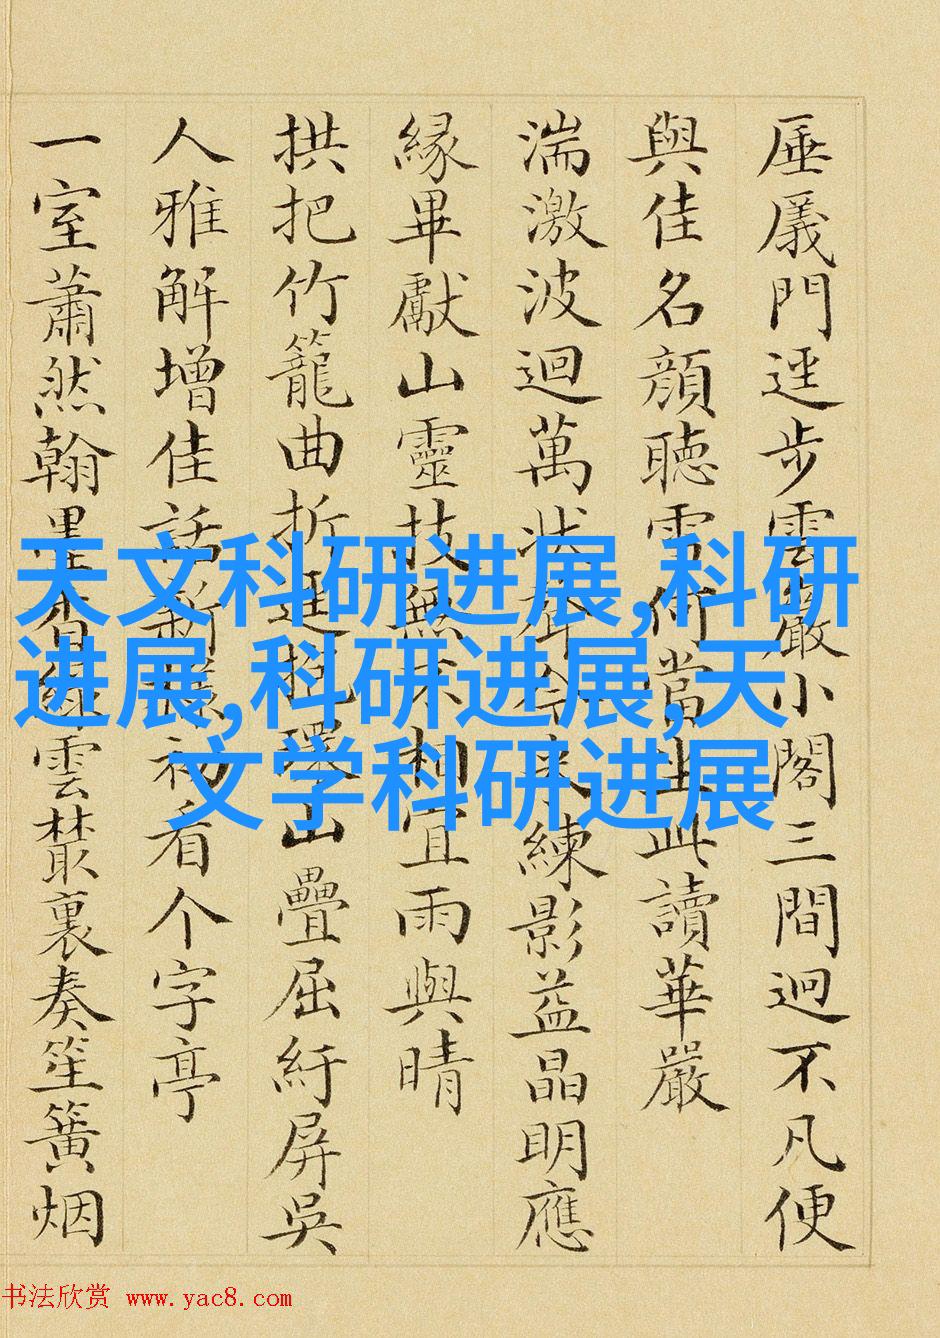 厜㕒門逕步雲巖小閣三間迥不凡便
與佳名顏聽雪何當坐此讀華嚴
湍激波迴萬狀聲今来練影益晶明應
緣畢獻山靈技無不相宜雨與晴
拱把竹籠曲折逕環山疊屈紆屏吳
人雅解增佳話新樣初看个字亭
一室蕭然翰墨香綠雲叢裏奏笙簧烟
天文科研进展,科研
进展,科研进展,天
文学科研进展
书法欣赏 www.yac8.com